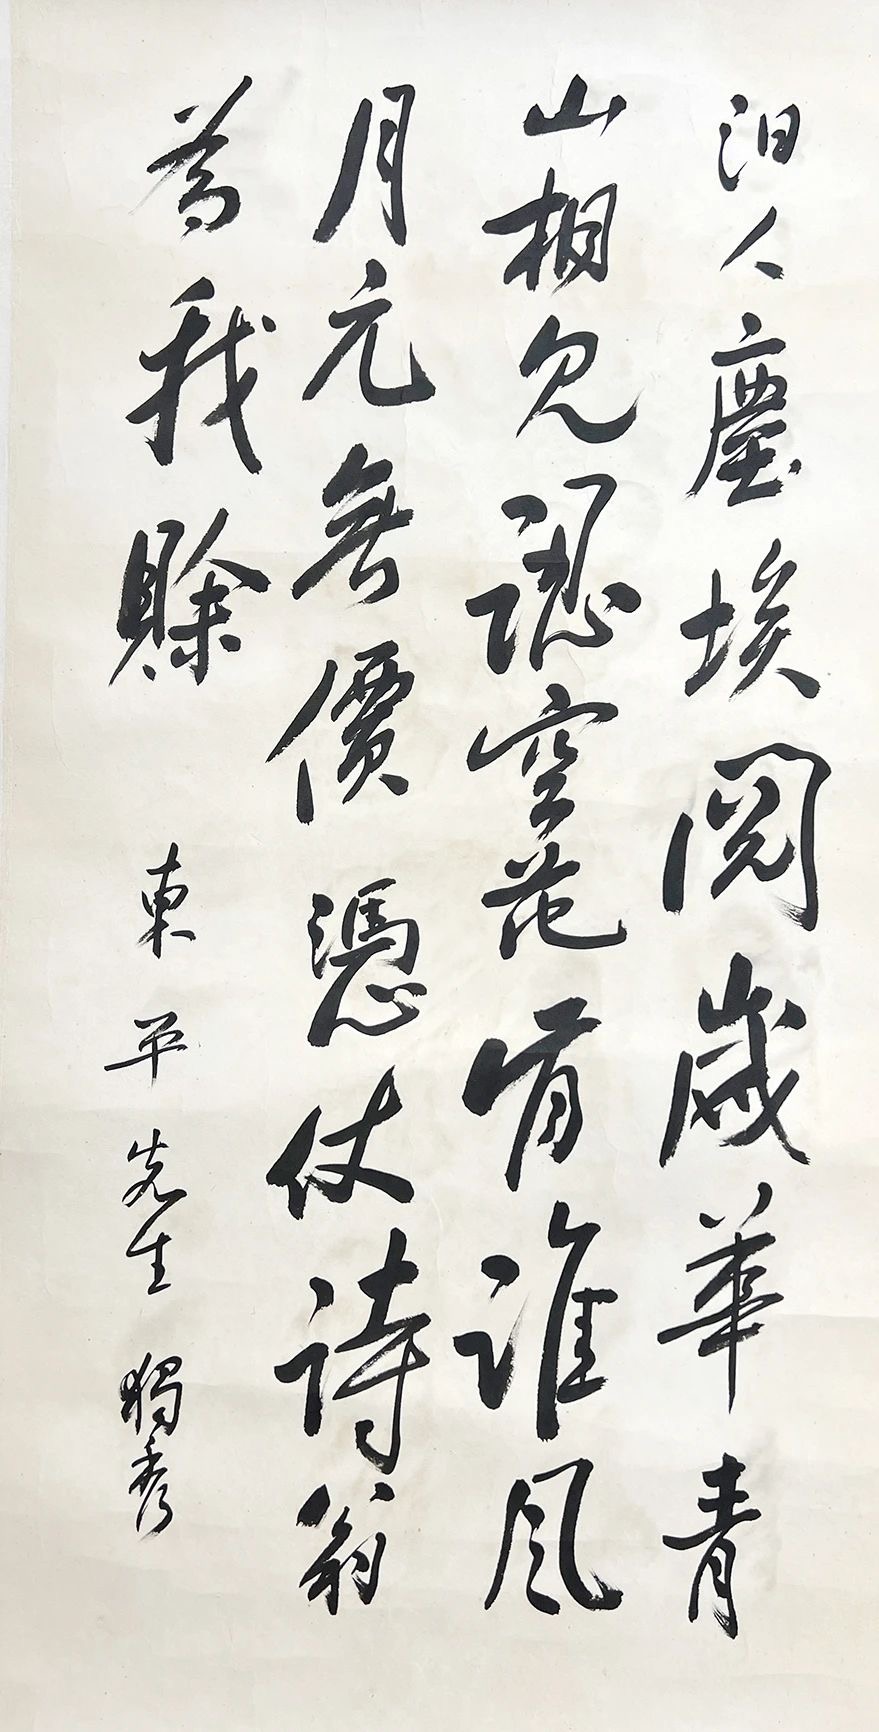 汩人塵埃閱歲華青
山相見認空花有誰風
月元無價憑仗詩翁
為我賒
東平先生 獨秀